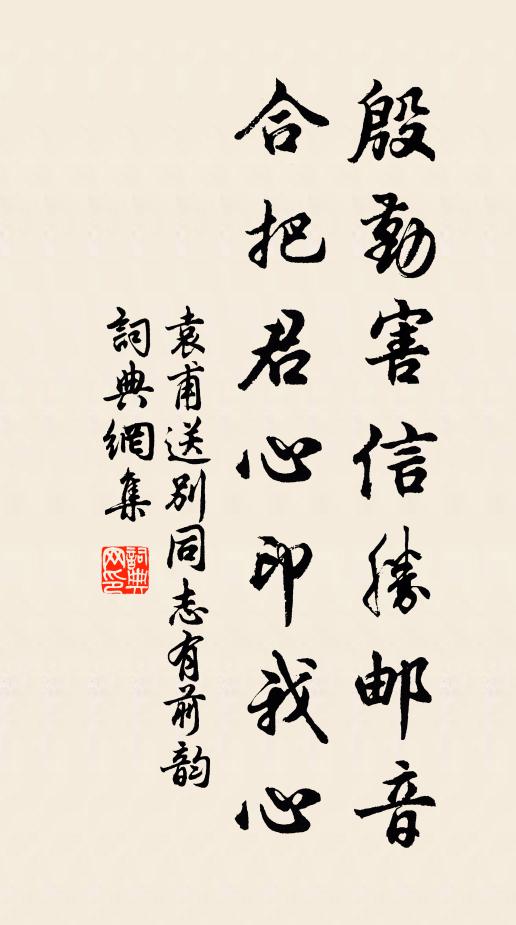 殷勤害信勝邮音
合把君心印我心
袁甫送别同志有前韵
詞典網集
詞典网印